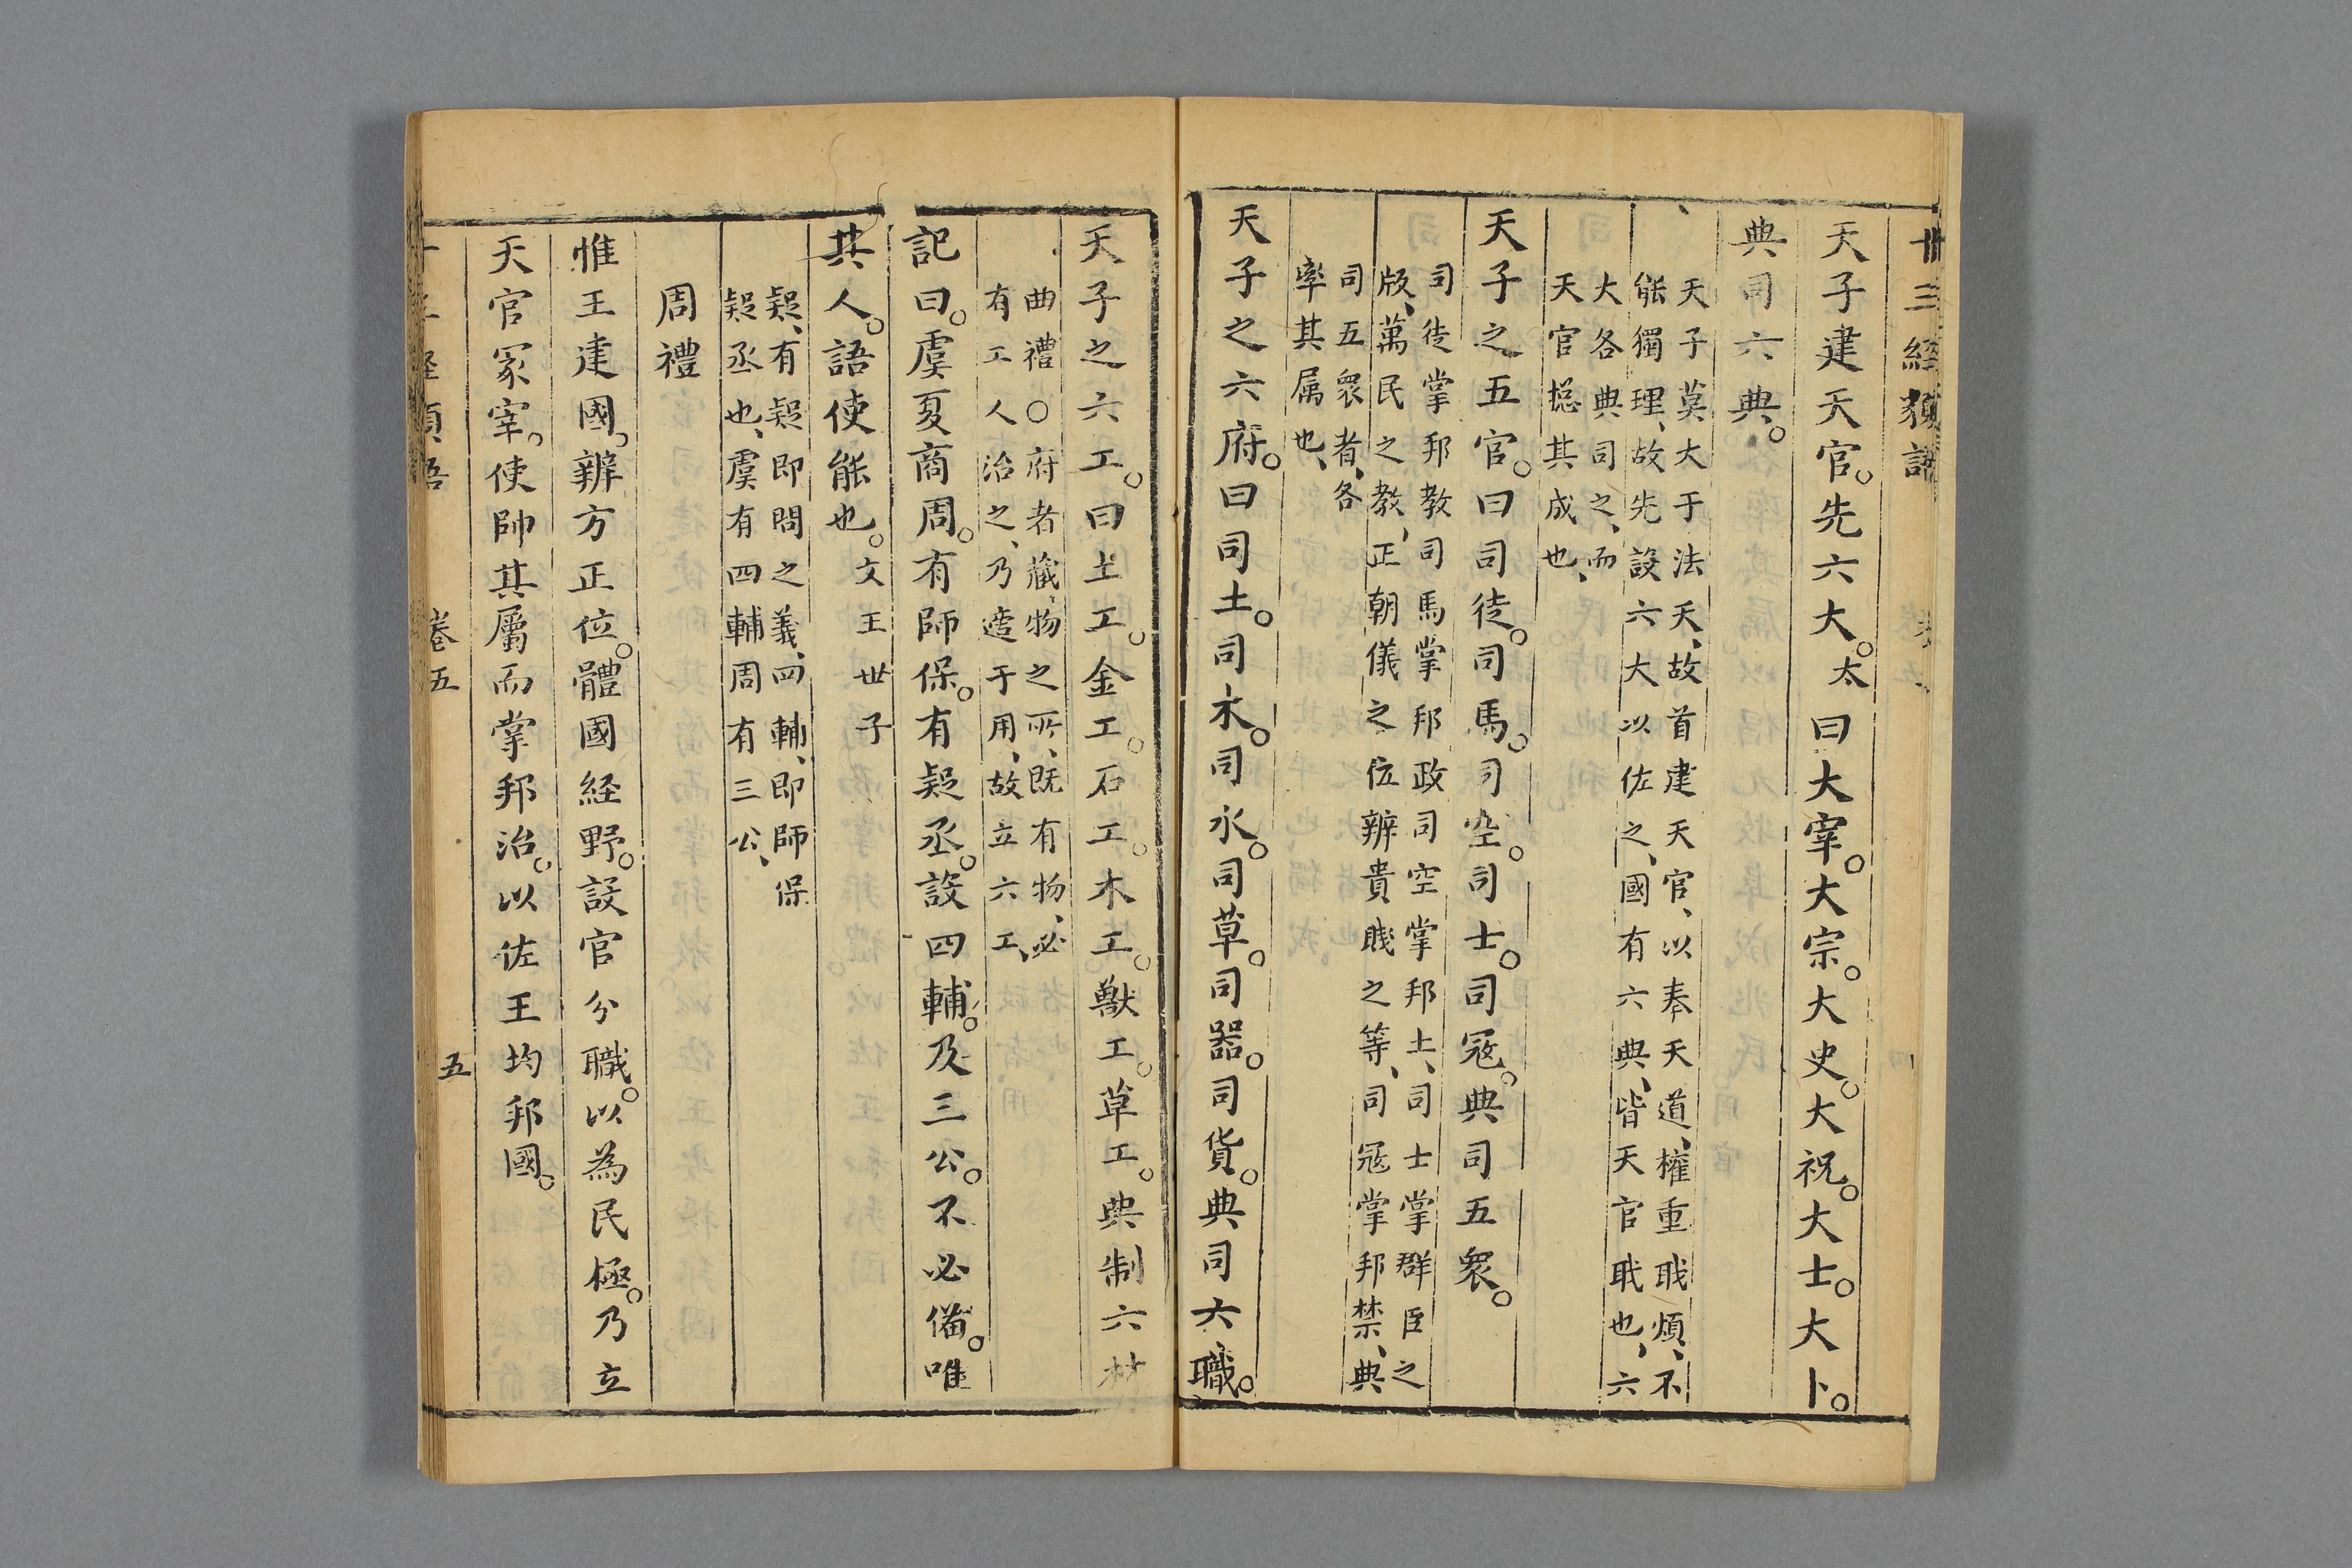 十三經類語
天子建天官。先六大。太曰大宰。大宗。大史。大祝。大士。大卜。
典司六典。
天子莫大于法天、故首建天官、以奉天道、權重職煩、不
能獨理、故先設六大以佐之、國有六典、皆天官職也、六
大各典司之、而
天官摠其成也、
天子之五官。曰司徒。司馬。司空。司士。司冦。典司五衆。
司徒掌邦教司馬掌邦政司空掌邦土、司士掌群臣之
版、萬民之教、正朝儀之位辨貴賤之等、司冦掌邦禁、典
司五衆者、各
率其属也、
天子之六府。曰司土。司木。司水。司草。司器。司貨。典司六職。
天子之六工。曰土工。金工。石工。木工。獸工。草工。典制六材
曲禮〇府者藏物之所、既有物、必
有工人治之、乃適于用、故立六工、
記曰。虞夏商周。有師保。有疑丞。設四輔。及三公。不必備。唯
其人。語使能也。文王世子
疑、有疑即問之義、四輔、即師保
疑丞也、虞有四輔周有三公、
周禮
惟王建國。辨方正位。體國経野。設官分職。以為民極。乃立
天官冢宰。使帥其屬而掌邦治。以佐王均邦國。
卷五
五